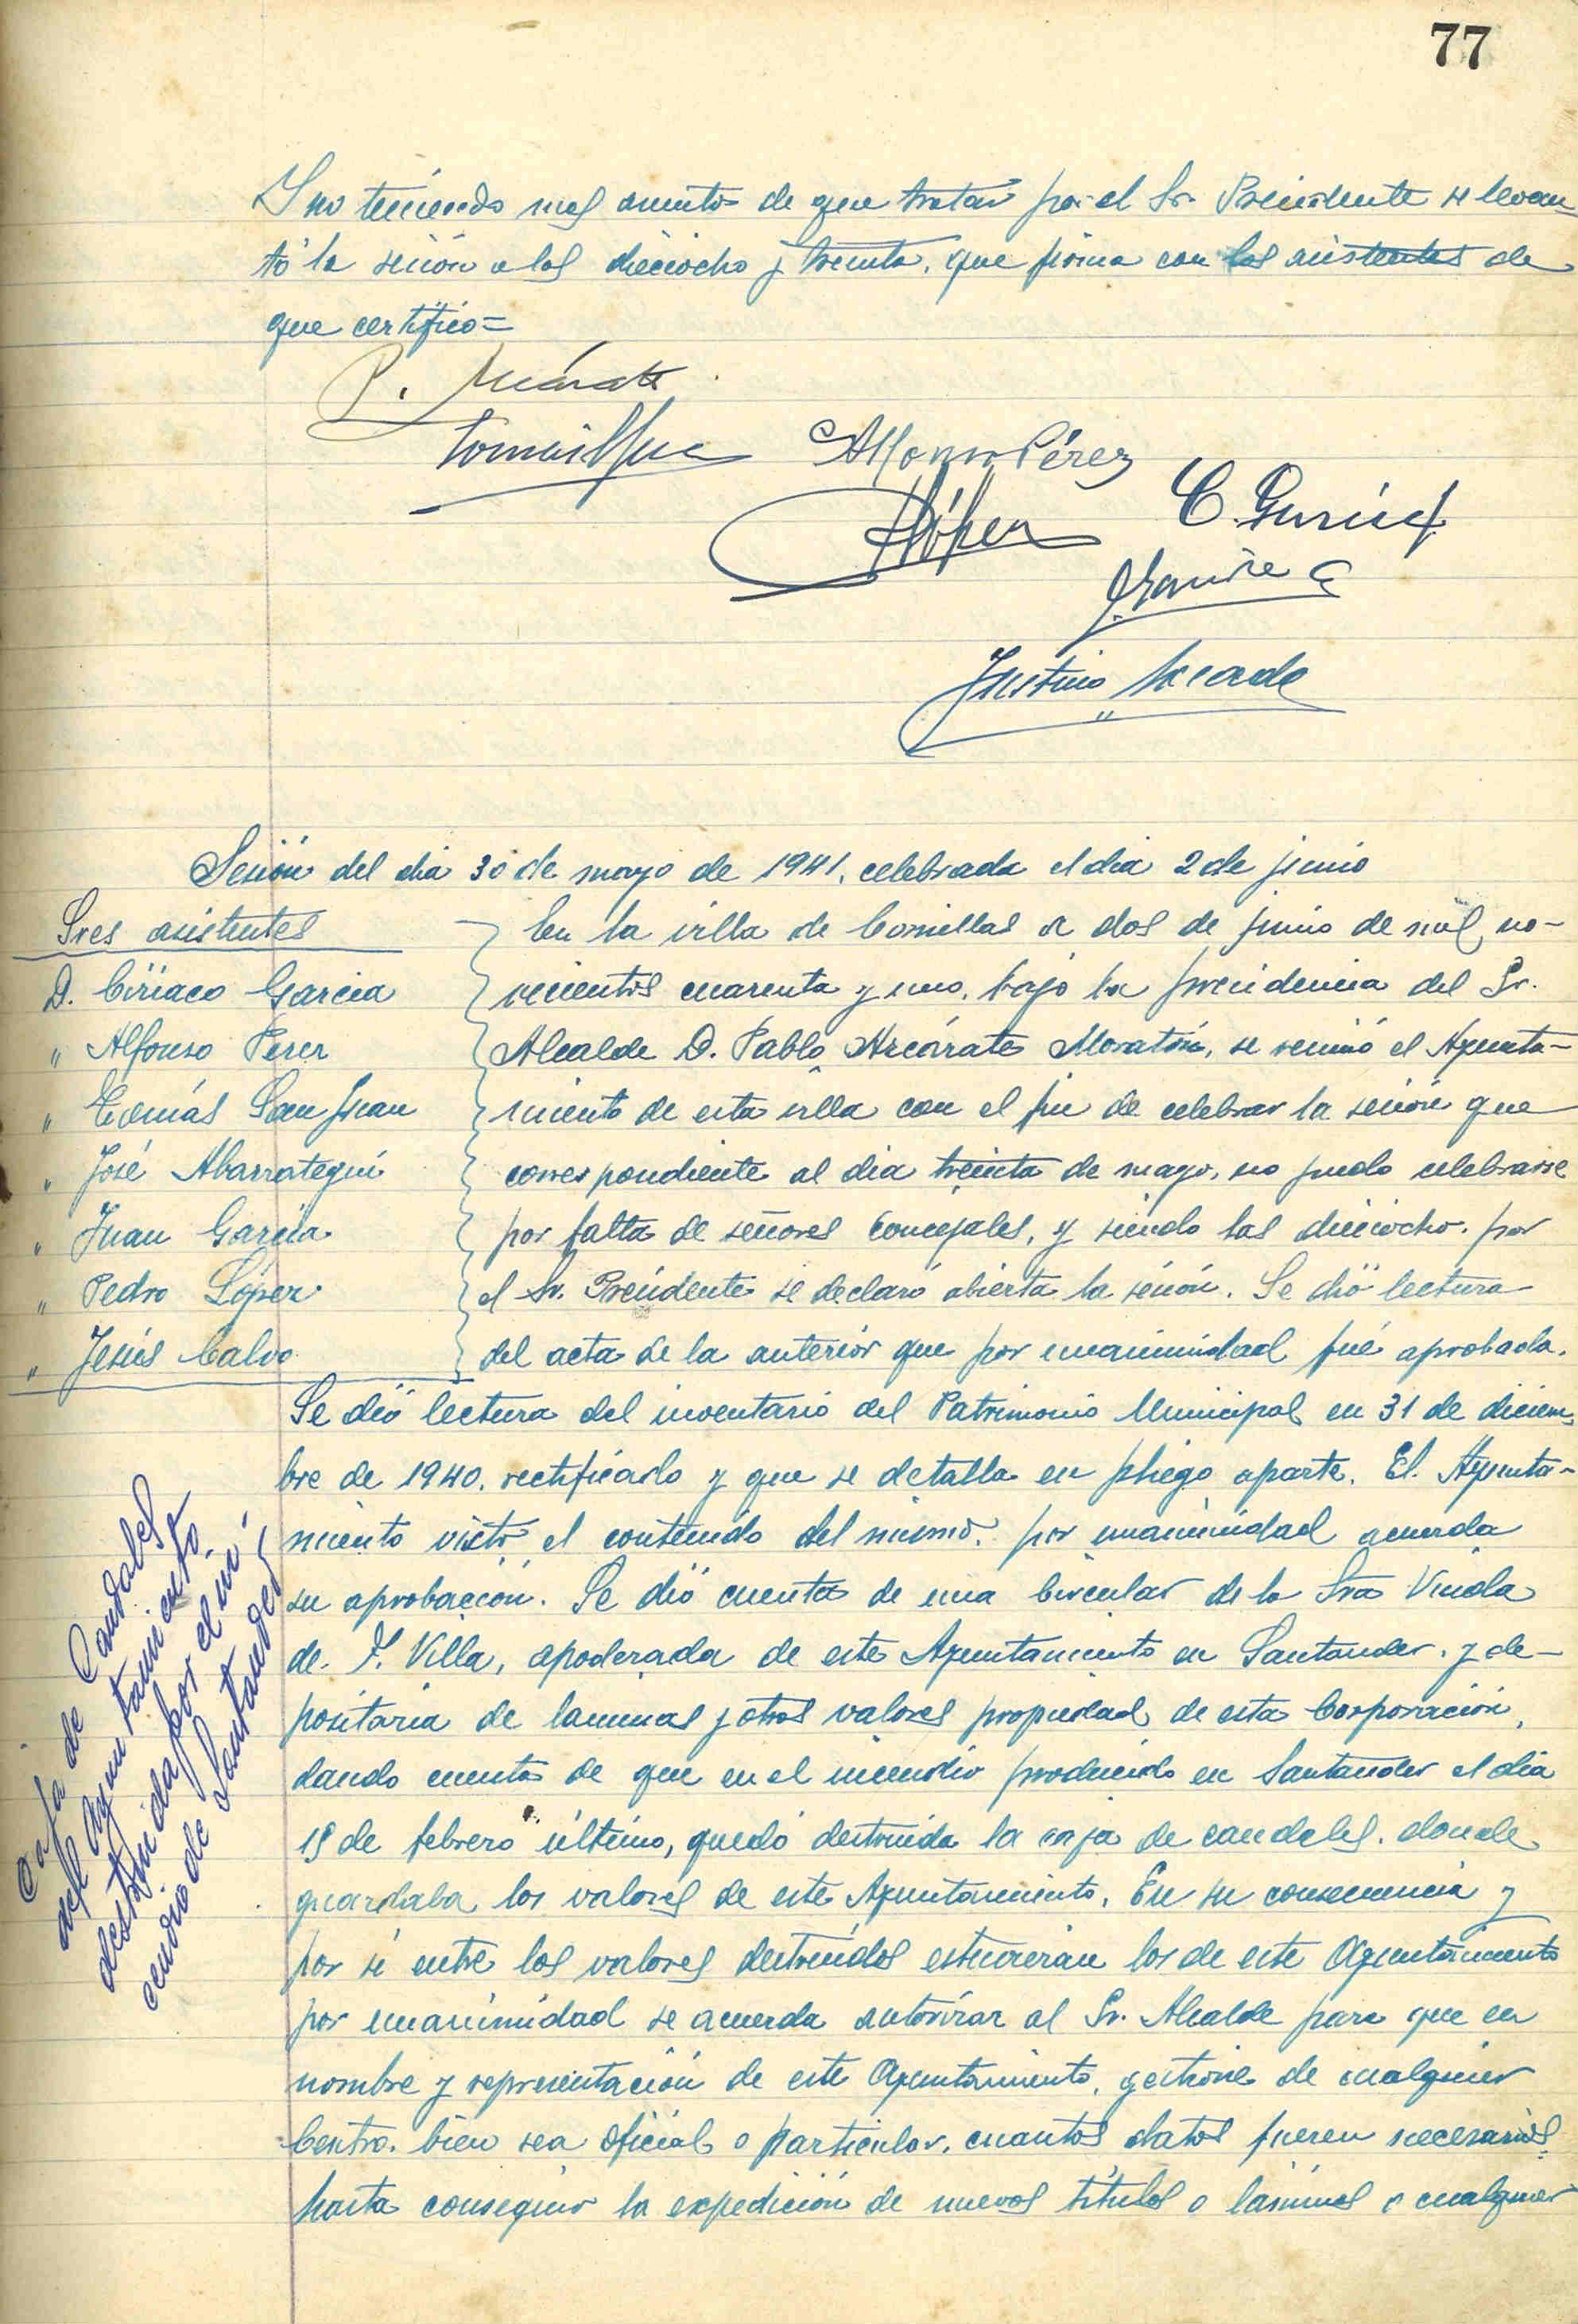 77
Y no teniendo mas asuntos de que tratar por el Sr. Presidente se levan-
tó la sesión a las dieciocho y treinta, que firma con los asistentes de
que certifico=
Alfonso Pérez
López
C. García
Justino
Sesión del dia 30 de mayo de 1941, celebrada el dia 2 de junio
Sres asistentes
D. Ciriaco Garcia
" Alfonso Perez
" Tomás San Juan
" José Abarrategui
" Juan Garcia
" Pedro López
" Jesús Calvo
En la villa de Comillas a dos de junio de mil no-
vecientos cuarenta y uno, bajo la presidencia del Sr.
Alcalde D. Pablo Azcárate Moratón, se reunió el Ayunta-
miento de esta villa con el fin de celebrar la sesión que
correspondiente al dia treinta de mayo, no pudo celebrarse
por falta de señores Concejales, y siendo las dieciocho, por
el Sr. Presidente se declaró abierta la sesión. Se dió lectura
del acta de la anterior que por unanimidad fué aprobada.
Se dió lectura del inventario del Patrimonio Municipal en 31 de diciem-
bre de 1940, rectificado y que se detalla en pliego aparte. El Ayunta-
miento visto el contenido del mismo, por unanimidad acuerda
su aprobación. Se dió cuenta de una Circular de la Sra Viuda
de F. Villa, apoderada de este Ayuntamiento en Santander, y de-
positaria de laminas y otros valores propiedad de esta Corporación,
dando cuenta de que en el incendio producido en Santander el dia
15 de febrero último, quedó destruida la caja de caudales, donde
guardaba los valores de este Ayuntamiento. En su consecuencia y
por si entre los valores destruidos estuvieran los de este Ayuntamiento
por unanimidad se acuerda autorizar al Sr. Alcalde para que en
nombre y representación de este Ayuntamiento, gestione de cualquier
Centro, bien sea oficial o particular, cuantos datos fueren necesarios
hasta conseguir la expedición de nuevos títulos o láminas o cualquier
Caja de Caudales
del Ayuntamiento
destruida por el in-
cendio de Santander